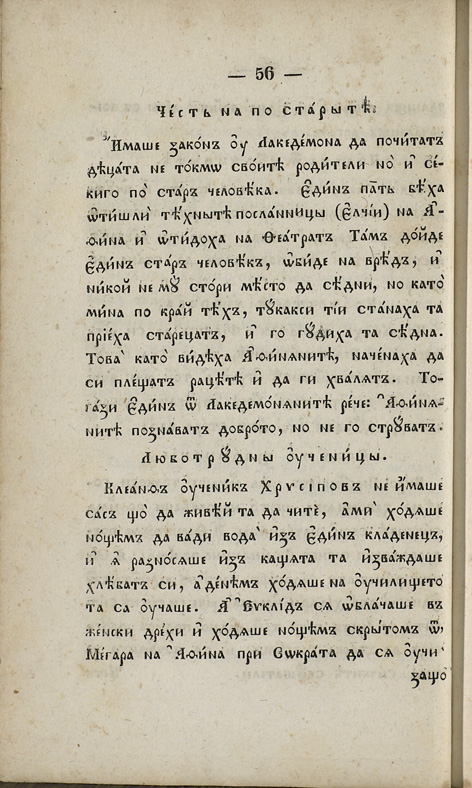 — 56 —
Че́сть на по ста́рытѣ.
И҆маше зако́нъ ᲂу҆ Лакеде́мона да почи́татъ
дѣца́та не то́кмѡ сво́итѣ роди́тели но̀ и҆ се́-
киго по̀ ста́ръ человѣ́ка. Є҆ди́нъ пѫть бѣ́ха
ѿти́шли тѣ́хнытѣ посла́нницы (є҆лчі́и) на А҆-
ѳи́на и҆ ѿти́доха на Ѳеа́тратъ Та́мъ до́йде
є҆ди́нъ ста́ръ человѣ́къ, ѡ҆би́де на врѣ́дъ, и҆
ни́кой не мꙋ̀ сто́ри мѣ́сто да сѣ́дни, но като̀
ми́на по кра́й тѣ́хъ, тꙋ́какси ті́и ста́наха та
прїе́ха ста́рецатъ, и҆ го гꙋ́диха та сѣ́дна.
Това̀ като̀ ви́дѣха А҆ѳи́нянитѣ, наче́наха да
си пле́щатъ рацѣ́тѣ и҆ да ги хва́лятъ. То-
га́зи є҆ди́нъ ѿ Лакедемо́нянитѣ ре́че: А҆ѳи́ня-
нитѣ позна́ватъ добро́то, но не го стрꙋ́ватъ.
Люботрꙋ́дны ᲂу҆ченицы.
Клеа́нѳъ ᲂу҆чени́къ Хрѵсі́повъ не и҆́маше
са́съ що̀ да живѣ́й та да чи́тѐ, а҆мѝ хо́дяше
но́щѣмъ да ва́ди вода̀ и҆зъ є҆ди́нъ кла́денецъ,
и҆ я҆ разно́сяше и҆зъ ка́щята та и҆зва́ждаше
хлѣ́батъ си, а҆ де́нѣмъ хо́дяше на ᲂу҆чи́лището
та са ᲂу҆́чаше. А҆ Эѵкли́дъ ся ѡ҆бла́чаше въ
же́нски дре́хи и҆ хо́дяше но́щѣмъ скры́томъ ѿ
Ме́гара на А҆ѳи́на при Сѡкра́та да ся ᲂу҆́чи
защо̀